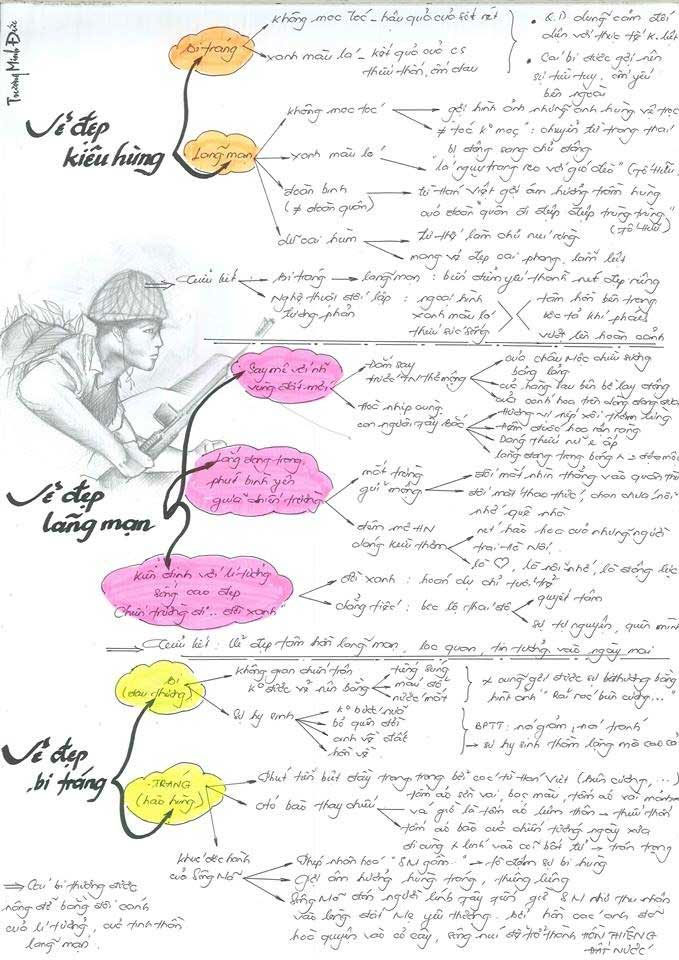 Trương Minh Đức
Vẻ đẹp
kiêu hùng
Bi tráng
không mọc tóc - hậu quả của sốt rét
xanh màu lá - kết quả của cs
thiếu thốn, ốm đau
dũng cảm đối
diện với thực tế k. liệt
Cái bi được gợi nên
sự tiều tụy, ốm yếu
bên ngoài
Lãng mạn
không mọc tóc
gợi hình ảnh những anh hùng vệ trọc
≠ tóc kº mọc: chuyển từ trạng thái
bị động sang chủ động
xanh màu lá
"lá ngụy trang reo với gió đèo" (Tố Hữu)
đoàn binh
(≠ đoàn quân)
từ Hán Việt gợi âm hưởng trầm hùng
của đoàn "quân đi điệp điệp trùng trùng"
(Tố Hữu)
dữ oai hùm
Tư thế làm chủ núi rừng
mang vẻ đẹp oai phong, lẫm liệt
⇒ Tiểu kết: Bi tráng → lãng mạn:
nét đẹp riêng
Nghệ thuật đối lập
tương phản
: ngoại hình
xanh màu lá
thiếu sức sống
tâm hồn bên trong
khí phách
vượt lên hoàn cảnh
Vẻ đẹp
lãng mạn
Say mê với
vùng đất mới
Đắm say
trước TN thơ mộng
của Châu Mộc chiều sương
bảng lảng
của hàng lau bên bờ lay động
của cánh hoa trên dòng đong đưa
Học nhịp cùng
con người Tây Bắc
Hương vị nếp xôi thơm lừng
đuốc hoa rộn ràng
Dáng thiếu nữ e ấp
Lắng đọng trong
phút bình yên
giữa chiến trường
mắt trừng
gửi mộng
đôi mắt nhìn thẳng vào quân thù
đôi mắt thao thức, chan chứa nỗi
nhớ quê nhà
đêm mơ HN
dáng kiều thơm
nét hào hoa của những người
trai Hà Nội
là ♡, là nỗi nhớ, là động lực
Kiên định với lí tưởng
sống cao đẹp
"Chiến trường đi.. đời xanh"
đời xanh: hoán dụ chỉ tuổi trẻ
chẳng tiếc: bộc lộ thái độ
quyết tâm
sự tự nguyện, quên mình
⇒ Tiểu kết: Vẻ đẹp tâm hồn lãng mạn, lạc quan, tin tưởng vào ngày mai
Vẻ đẹp
bi tráng
Bi
(đau thương)
không gian chiến trận
kº được vẽ nên bằng
tiếng súng
máu đổ
nước mắt
cũng gợi được sự bi thương bằng
hình ảnh "Rải rác biên cương..."
Sự hy sinh
kº bước nữa
bỏ quên đời
anh về đất
hồn về
BPTT: nói giảm, nói tránh
→ sự hy sinh thầm lặng mà cao cả
TRÁNG
(hào hùng)
Phút tiễn biệt đầy trang trọng bởi các từ Hán Việt (biên cương, ...)
Áo bào thay chiếu
tấm áo sờn vai, bạc màu, tấm áo vải
và gió là tấm áo liệm thân → thiếu thốn
tấm áo bào của chiến tướng ngày xưa
đi cùng × lính vào cõi bất tử → trân trọng
khúc độc hành
của Sông Mã
Phép nhân hoá "SM gầm.." → tô đậm sự bi hùng
Gợi âm hưởng hùng tráng, thiêng liêng
Sông Mã đón người lính Tây Tiến giờ SM như thu nhận
vào lòng đất Mẹ yêu thương. Bởi hồn các anh đã
hoà quyện vào cỏ cây, sông núi để trở thành HỒN THIÊNG
ĐẤT NƯỚC
⇒ Cái bi thương được
nâng đỡ bằng đôi cánh
của lí tưởng, của tinh thần
lãng mạn.